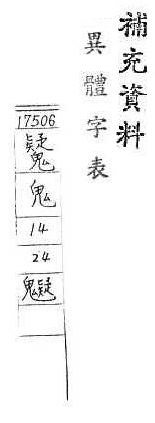 補充資料
異體字表
17506
鬼
14
24